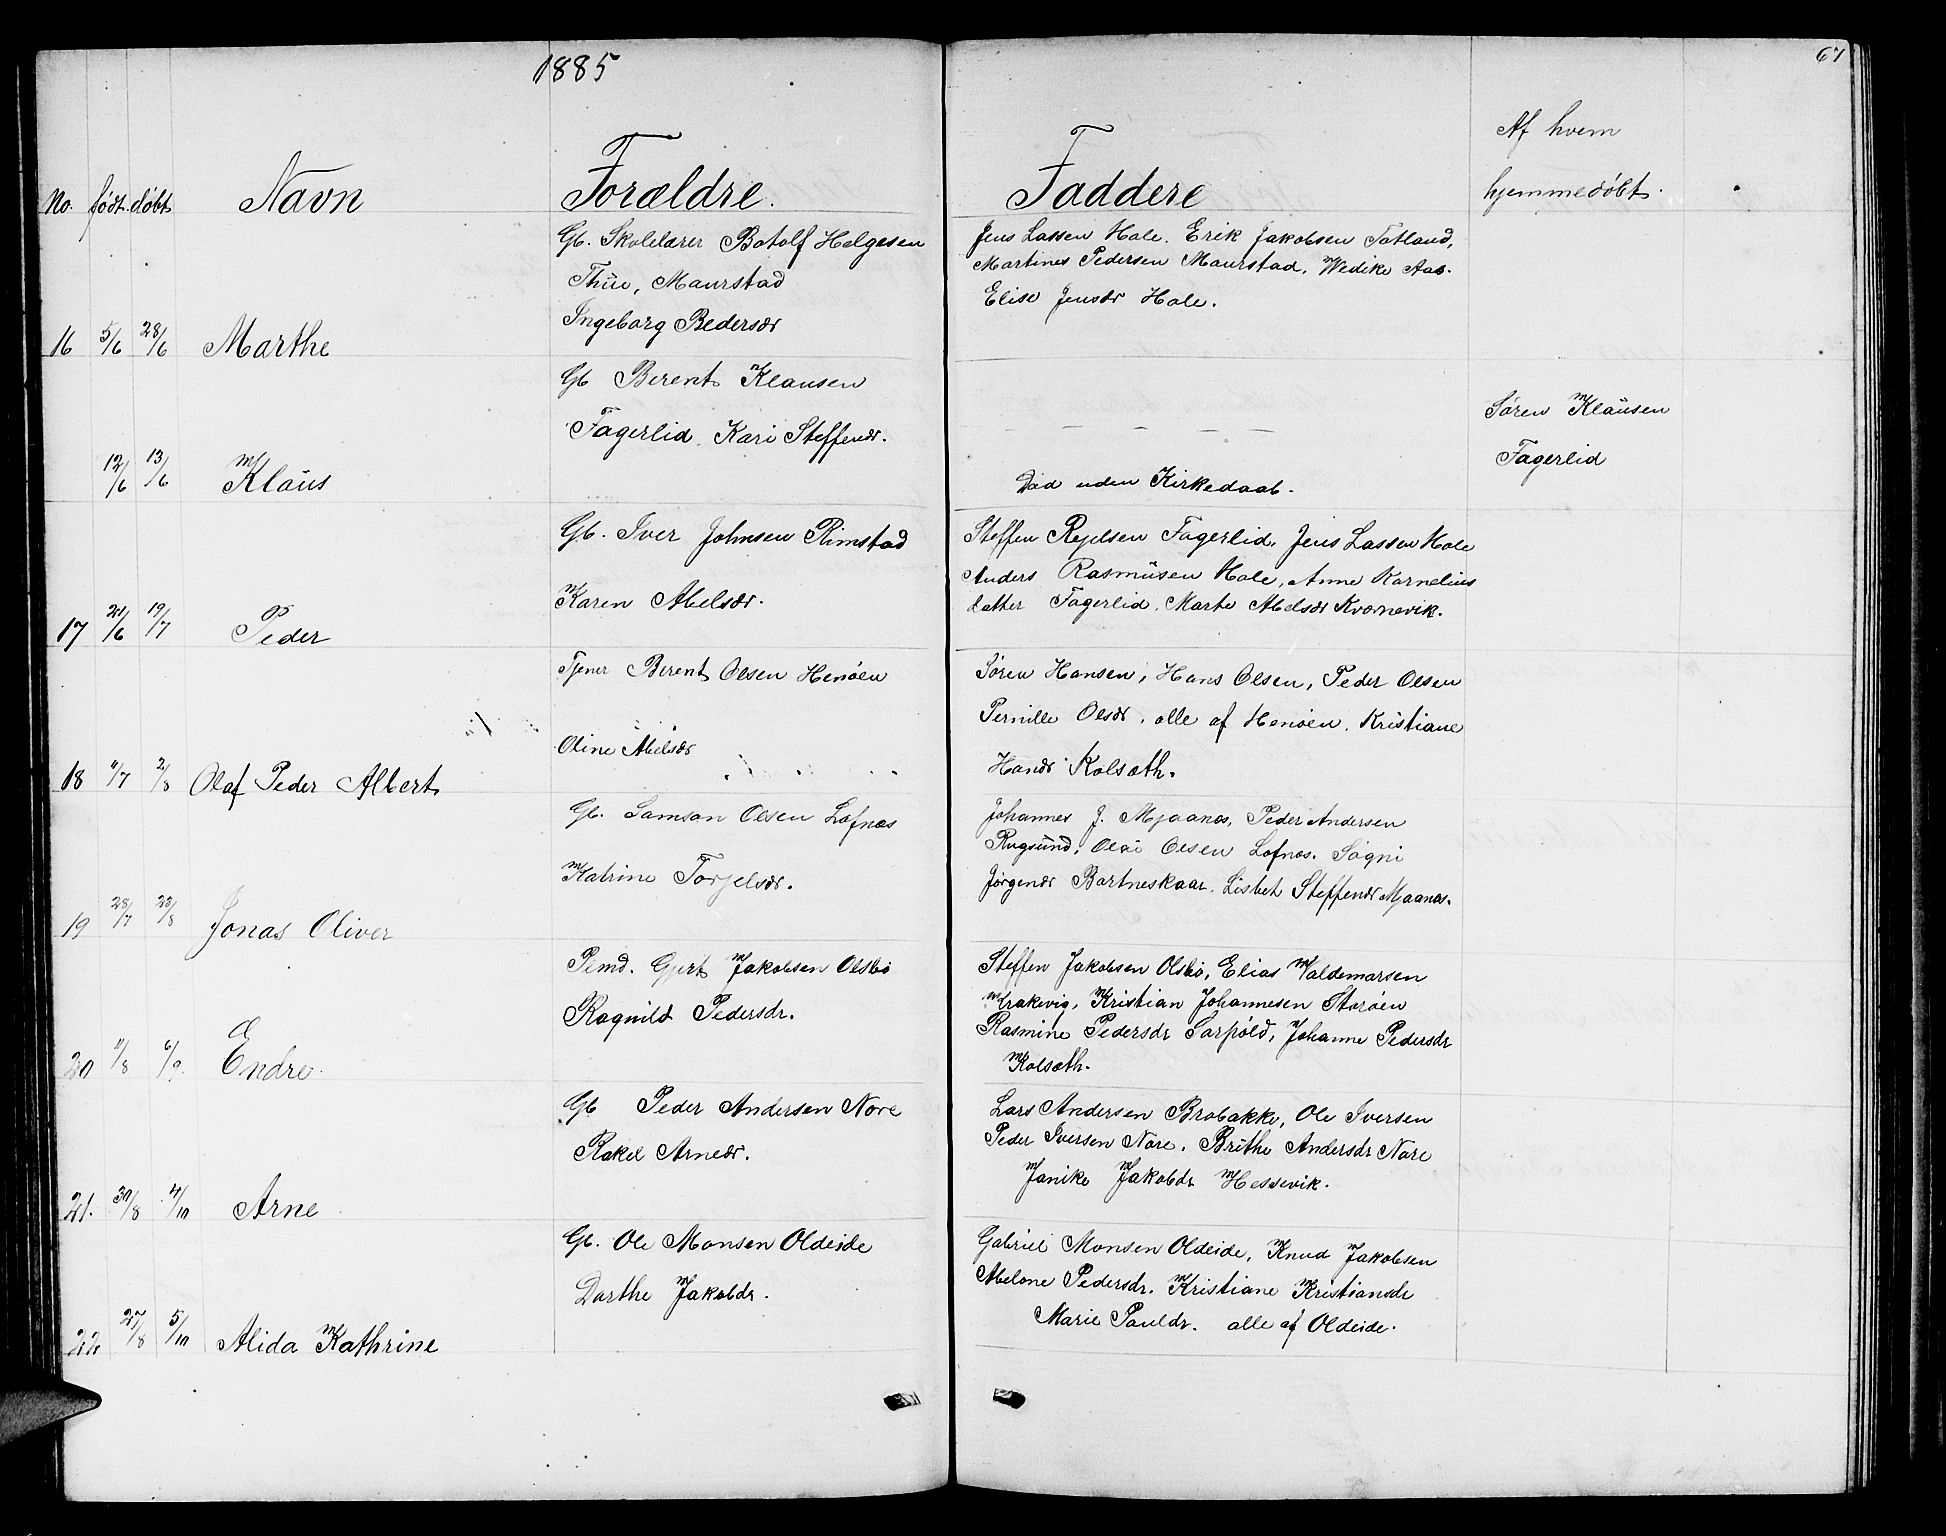 1885
67
No. født. døbt Navn Forældre. Faddere Af hvem
hjemmedøbt.
16 5/6 28/6 Marthe
Gb. Skolelærer Botolf Helgesen
Thue, Maurstad
Ingeborg Pedersdr
Jens Lassen Hole. Erik Jakobsen Totland,
Martines Pedersen Maurstad, Wedike Aas.
Elise Jensdr Hole.
12/6 13/6 Klaus
Gb Berent Klausen
Fagerlid Kari Steffendr.
– – – –
Død uden Kirkedaab.
Søren Klausen
Fagerlid
17 21/6 19/7 Peder
Gb. Iver Johnsen Rimstad
Karen Abelsdr.
Steffen Fagerlid, Jens Lassen Hole
Anders Rasmusen Hole, Anne Kornelius
datter Fagerlid. Marte Abelsdr Kvornevik.
18 11/7 2/8 Olaf Peder Albert
Tjener Berent Olsen Henøen
Oline Abelsdr
Søren Hansen, Hans Olsen, Peder Olsen
Pernille Olsdr. alle af Henøen. Kristiane
Handr Kolsæth.
19 28/7 23/8 Jonas Oliver
Gb. Samson Olsen Lofnæs
Katrine Torjelsdr.
Johannes J. Mjaanæs, Peder Andersen
Rugsund, Olai Olsen Lofnæs. Søgni
Jørgendr Bortneskaar. Lisbet Steffendr Mjaanæs.
20 11/8 6/9. Endre.
Pemd. Gjert Jakobsen Olsbø
Ragnild Pedersdr.
Steffen Jakobsen Olsbø, Elias Waldemarsen
Krakevig, Kristian Johannesen Storøen
Rasmine Pedersdr Sarpøld, Johanne Pedersdr
Kolsæth.
21. 30/8 4/10 Arne
Gb Peder Andersen Nore
Rakel Arnedr.
Lars Andersen Brobakke, Ole Iversen
Peder Iversen Nore. Brithe Andersdr Nore
Janike Jakobdr Hessevik.
22 27/8 5/10 Alida Kathrine
Gb. Ole Monsen Oldeide
Dorthe Jakobdr.
Gabriel Monsen Oldeide, Knud Jakobsen
Abelone Pedersdr. Kristiane Kristiansdr
Marie Pauldr. alle af Oldeide.